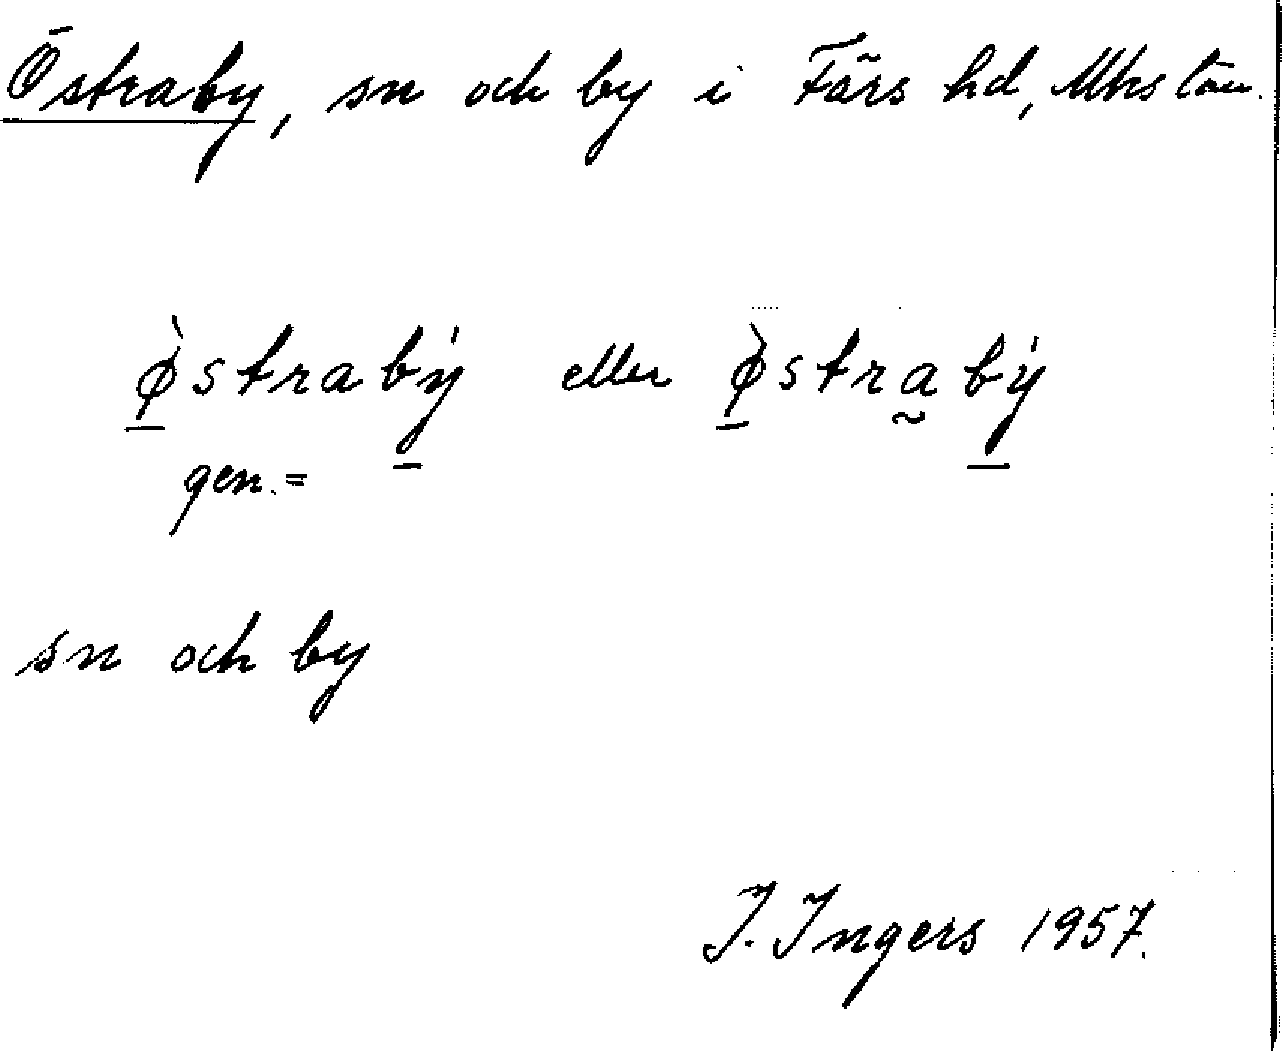 Östraby, sn och by i Färs hd, Mhs län.
ø̀strabý eller ø̀stra̰bý
gen. =
sn och by
I. Ingers 1957.